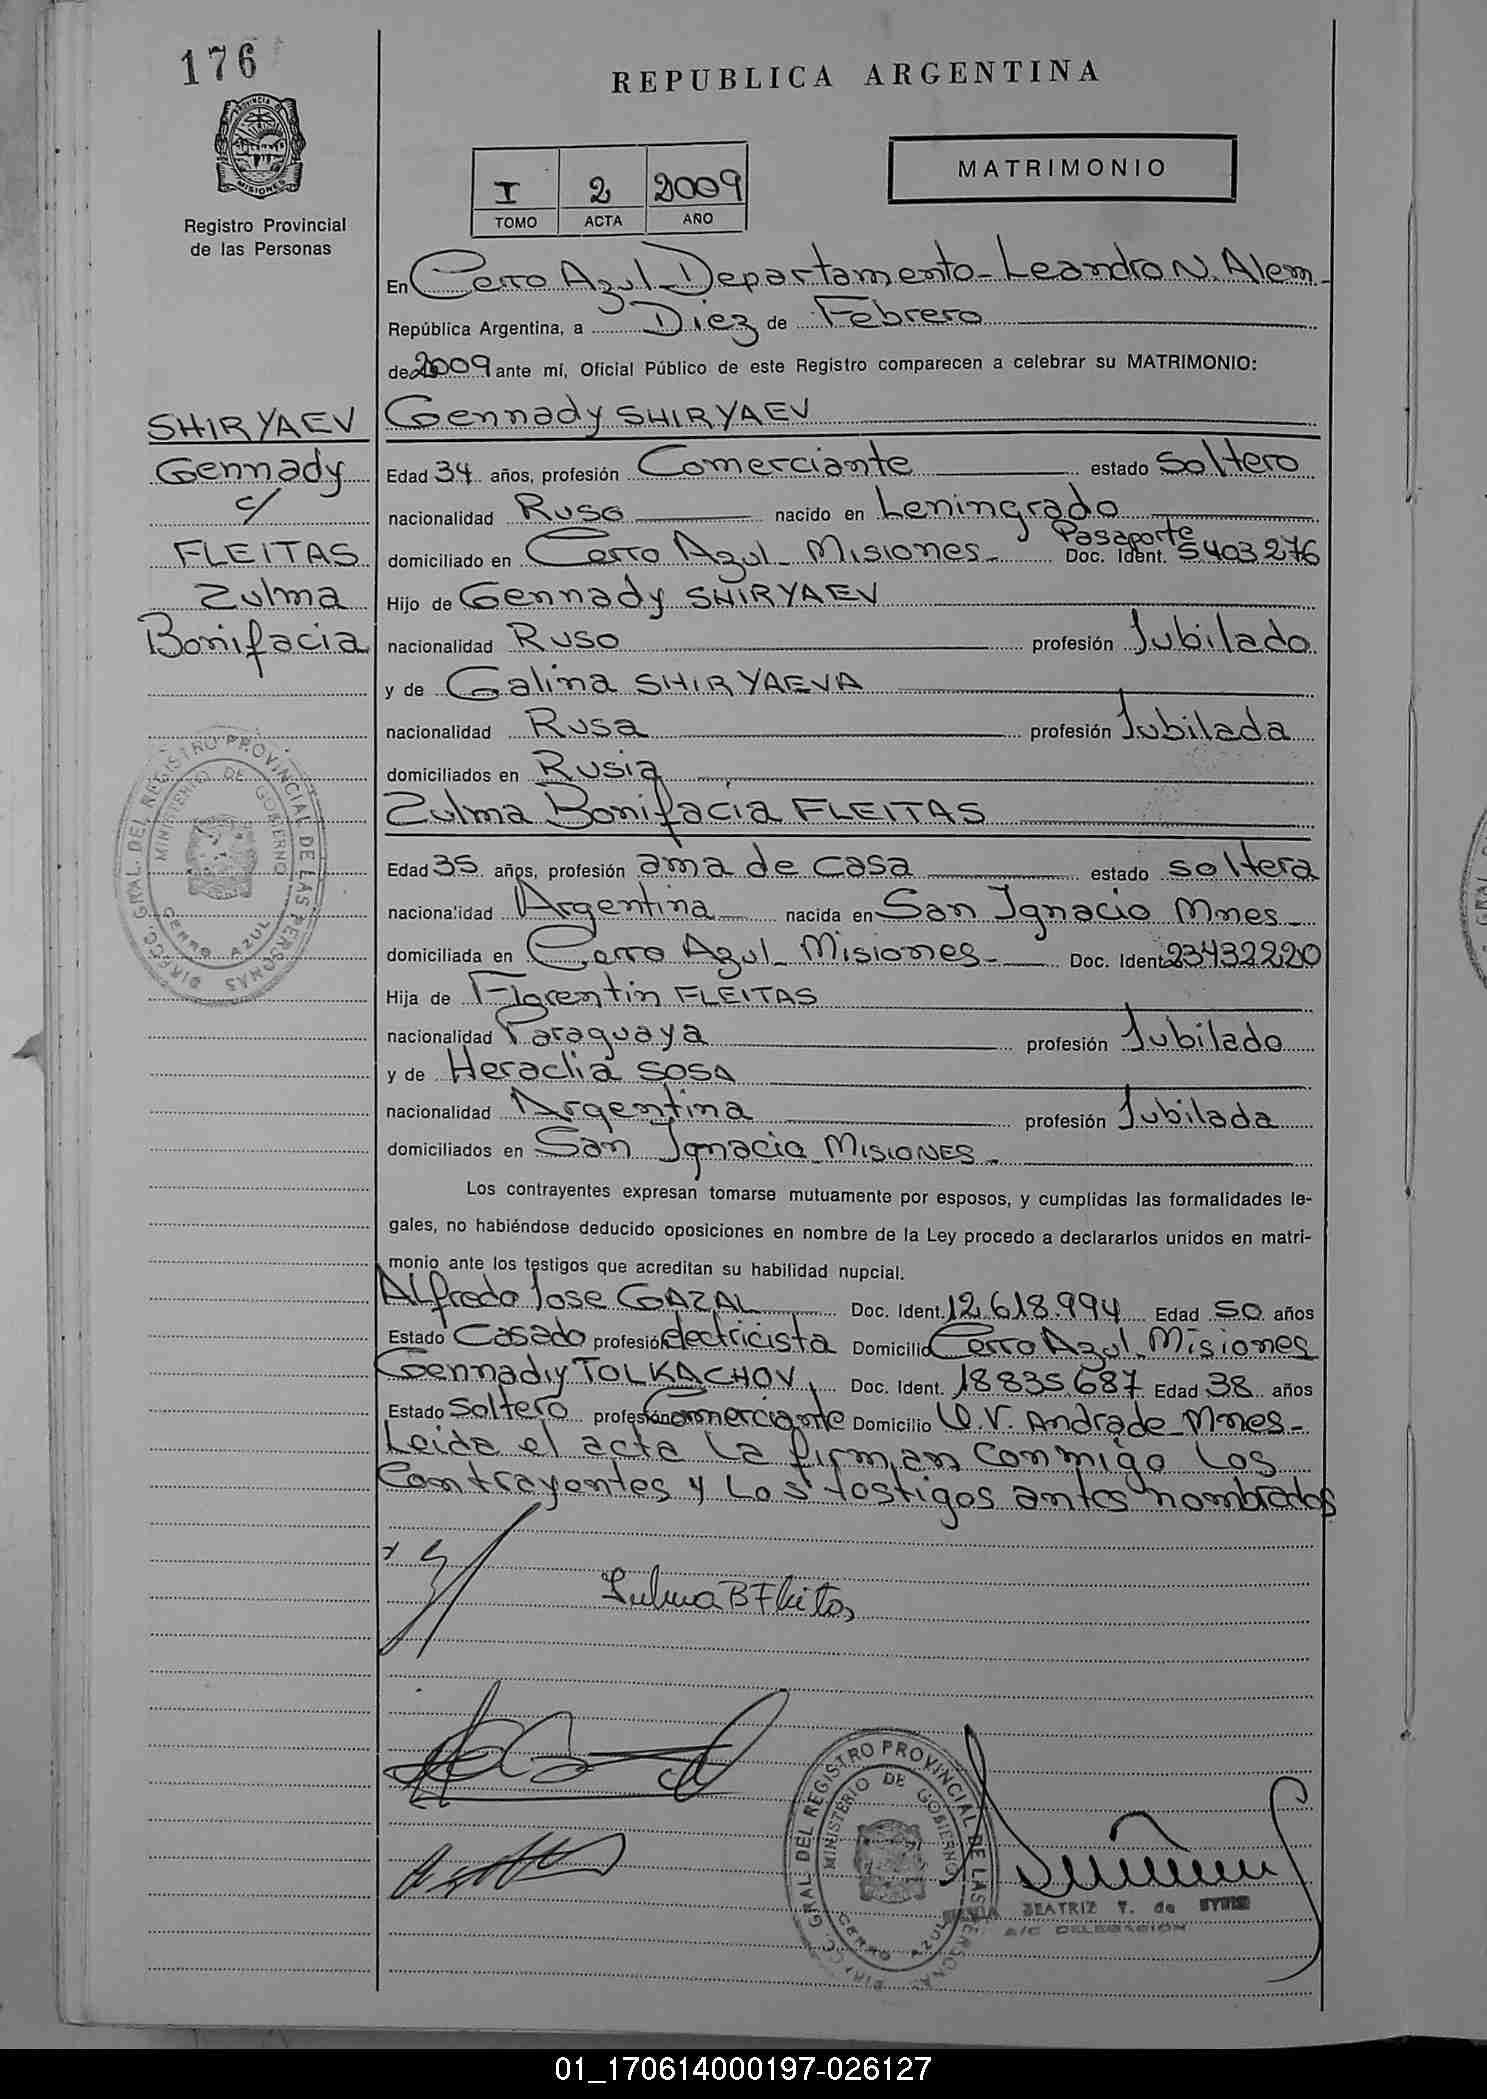 176
REPUBLICA ARGENTINA
PROVINCIA DE
MISIONES
Registro Provincial
de las Personas
MATRIMONIO
I 2 2009
TOMO ACTA AÑO
En Cerro Azul_Departamento_Leandro N. Alem_
República Argentina, a Diez de Febrero
de 2009 ante mí, Oficial Público de este Registro comparecen a celebrar su MATRIMONIO:
SHIRYAEV
Gennady
c/
FLEITAS
Zulma
Bonifacia
Gennady SHIRYAEV
Edad 34 años, profesión Comerciante estado soltero
nacionalidad Ruso nacido en Leningrado
domiciliado en Cerro Azul_ Misiones_ Pasaporte Doc. Ident. 5403276
Hijo de Gennady SHIRYAEV
nacionalidad Ruso profesión Jubilado
y de Galina SHIRYAEVA
nacionalidad Rusa profesión Jubilada
domiciliados en Rusia
Zulma Bonifacia FLEITAS
Edad 35 años, profesión ama de casa estado soltera
nacionalidad Argentina nacida en San Ignacio Mnes_
domiciliada en Cerro Azul_ Misiones_ Doc. Ident. 23432220
Hija de Florentin FLEITAS
nacionalidad Paraguaya profesión Jubilado
y de Heraclia SOSA
nacionalidad Argentina profesión Jubilada
domiciliados en San Ignacio_MISIONES_
Los contrayentes expresan tomarse mutuamente por esposos, y cumplidas las formalidades le-
gales, no habiéndose deducido oposiciones en nombre de la Ley procedo a declararlos unidos en matri-
monio ante los testigos que acreditan su habilidad nupcial.
Alfredo Jose GAZAL Doc. Ident. 12.618.994 Edad 50 años
Estado Casado profesión electricista Domicilio Cerro Azul_Misiones
Gennadiy TOLKACHOV Doc. Ident. 18835687 Edad 38 años
Estado soltero profesión Comerciante Domicilio O.V. Andrade_Mnes_
Leida el acta la firman conmigo los
Contrayentes y los testigos antes nombrados
Zulma B Fleitas
DIRECC. GRAL. DEL REGISTRO PROVINCIAL DE LAS PERSONAS
MINISTERIO DE GOBIERNO
CERRO AZUL
DIRECC. GRAL. DEL REGISTRO PROVINCIAL DE LAS PERSONAS
MINISTERIO DE GOBIERNO
CERRO AZUL
BEATRIZ T. de
A/C DELEGACION
01_170614000197-026127